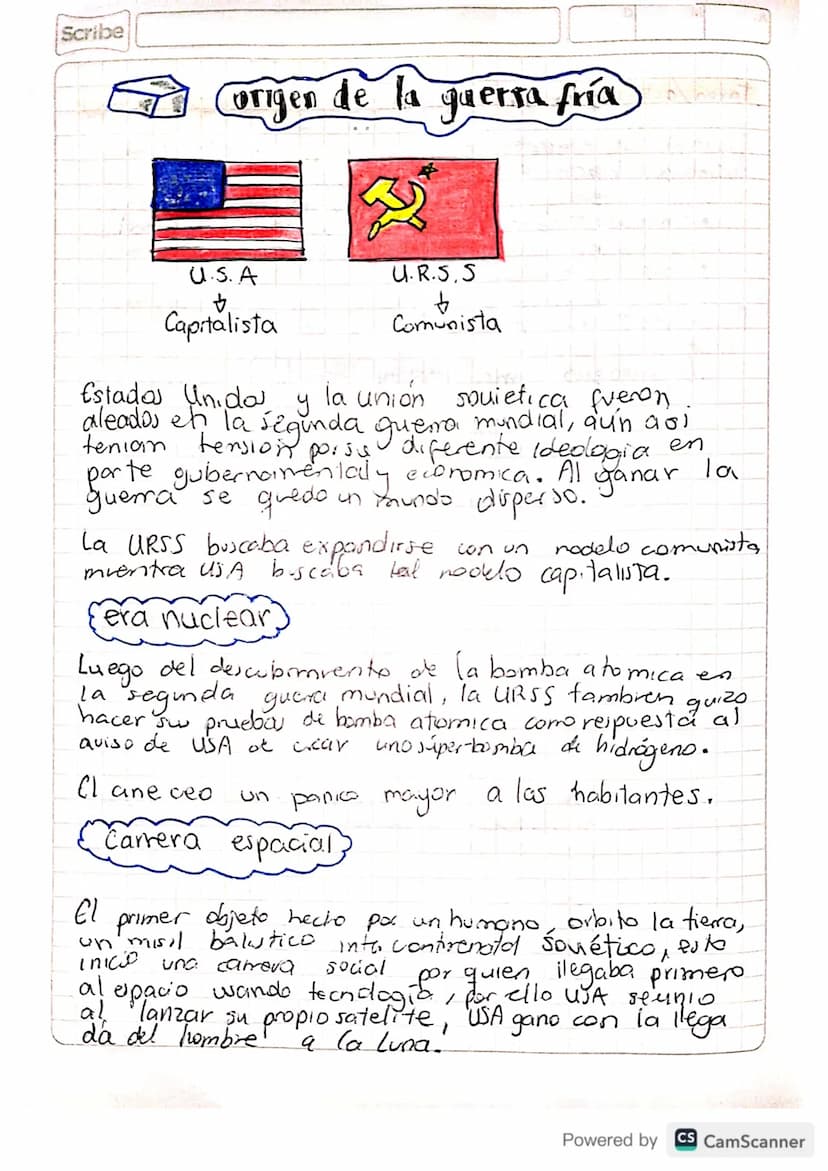 Scribe
origen de la guerra fría
U.S.A
U.R.S.S
Capitalista
Comunista
Estados Unidos y la unión sovietica fueron
aleados en la segunda guerra mundial, aún asi
tenian tensión por su diferente ideologia en
parte gubernamental y economica. Al ganar la
guerra se quedo un mundo disperso.
La URSS buscaba expandirse con un modelo comunista
mientra USA buscaba el modelo capitalista.
era nuclear
Luego del descubrimiento de la bomba atomica en
la segunda guerra mundial, la URSS tambien quizo
hacer su pruebas de bomba atomica como respuesta al
aviso de USA de crear una súper bomba de hidrógeno.
El cine creo un panico mayor a las habitantes.
Carrera espacial
El primer objeto hecho por un humano, orbito la tierra,
un misil balistico soviético, esto
inicio una carrera social por quien llegaba primero
al espacio usando tecnología, por ello USA se unio
al lanzar su propio satelite, USA gano con la llega
da del hombre a la Luna.
Powered by CS CamScanner